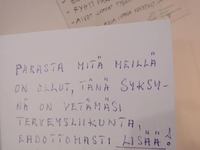 PARASTA MITÄ MEILLÄ
ON OLLUT, TÄNÄ SYKSY-
NÄ ON VETÄMÄSI
TERVEYSLIIKUNTA,
EHDOTTOMASTI LISÄÄ!